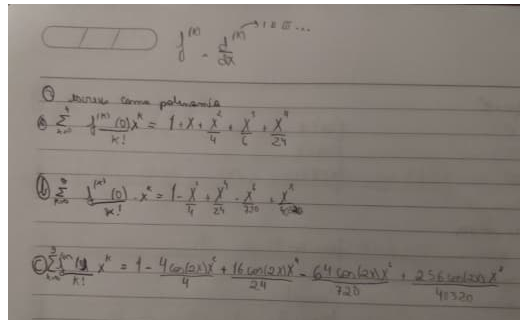 f^(n) = d^(n)/dx → I II III ...
escreva como polinomio
a) Σ_{k=0}^{4} f^(k)(0)x^k/k! = 1 + x + x²/4 + x³/6 + x⁴/24
b) Σ_{k=0} f^(k)(0)/k! · x^k = 1 - x²/4 + x⁴/24 - x⁶/720 + x⁸/40320
c) Σ_{k=0} f^(n)/k! x^k = 1 - 4cos(2x)x²/4 + 16cos(2x)x⁴/24 - 64cos(2x)x⁶/720 + 256cos(2x)x⁸/40320